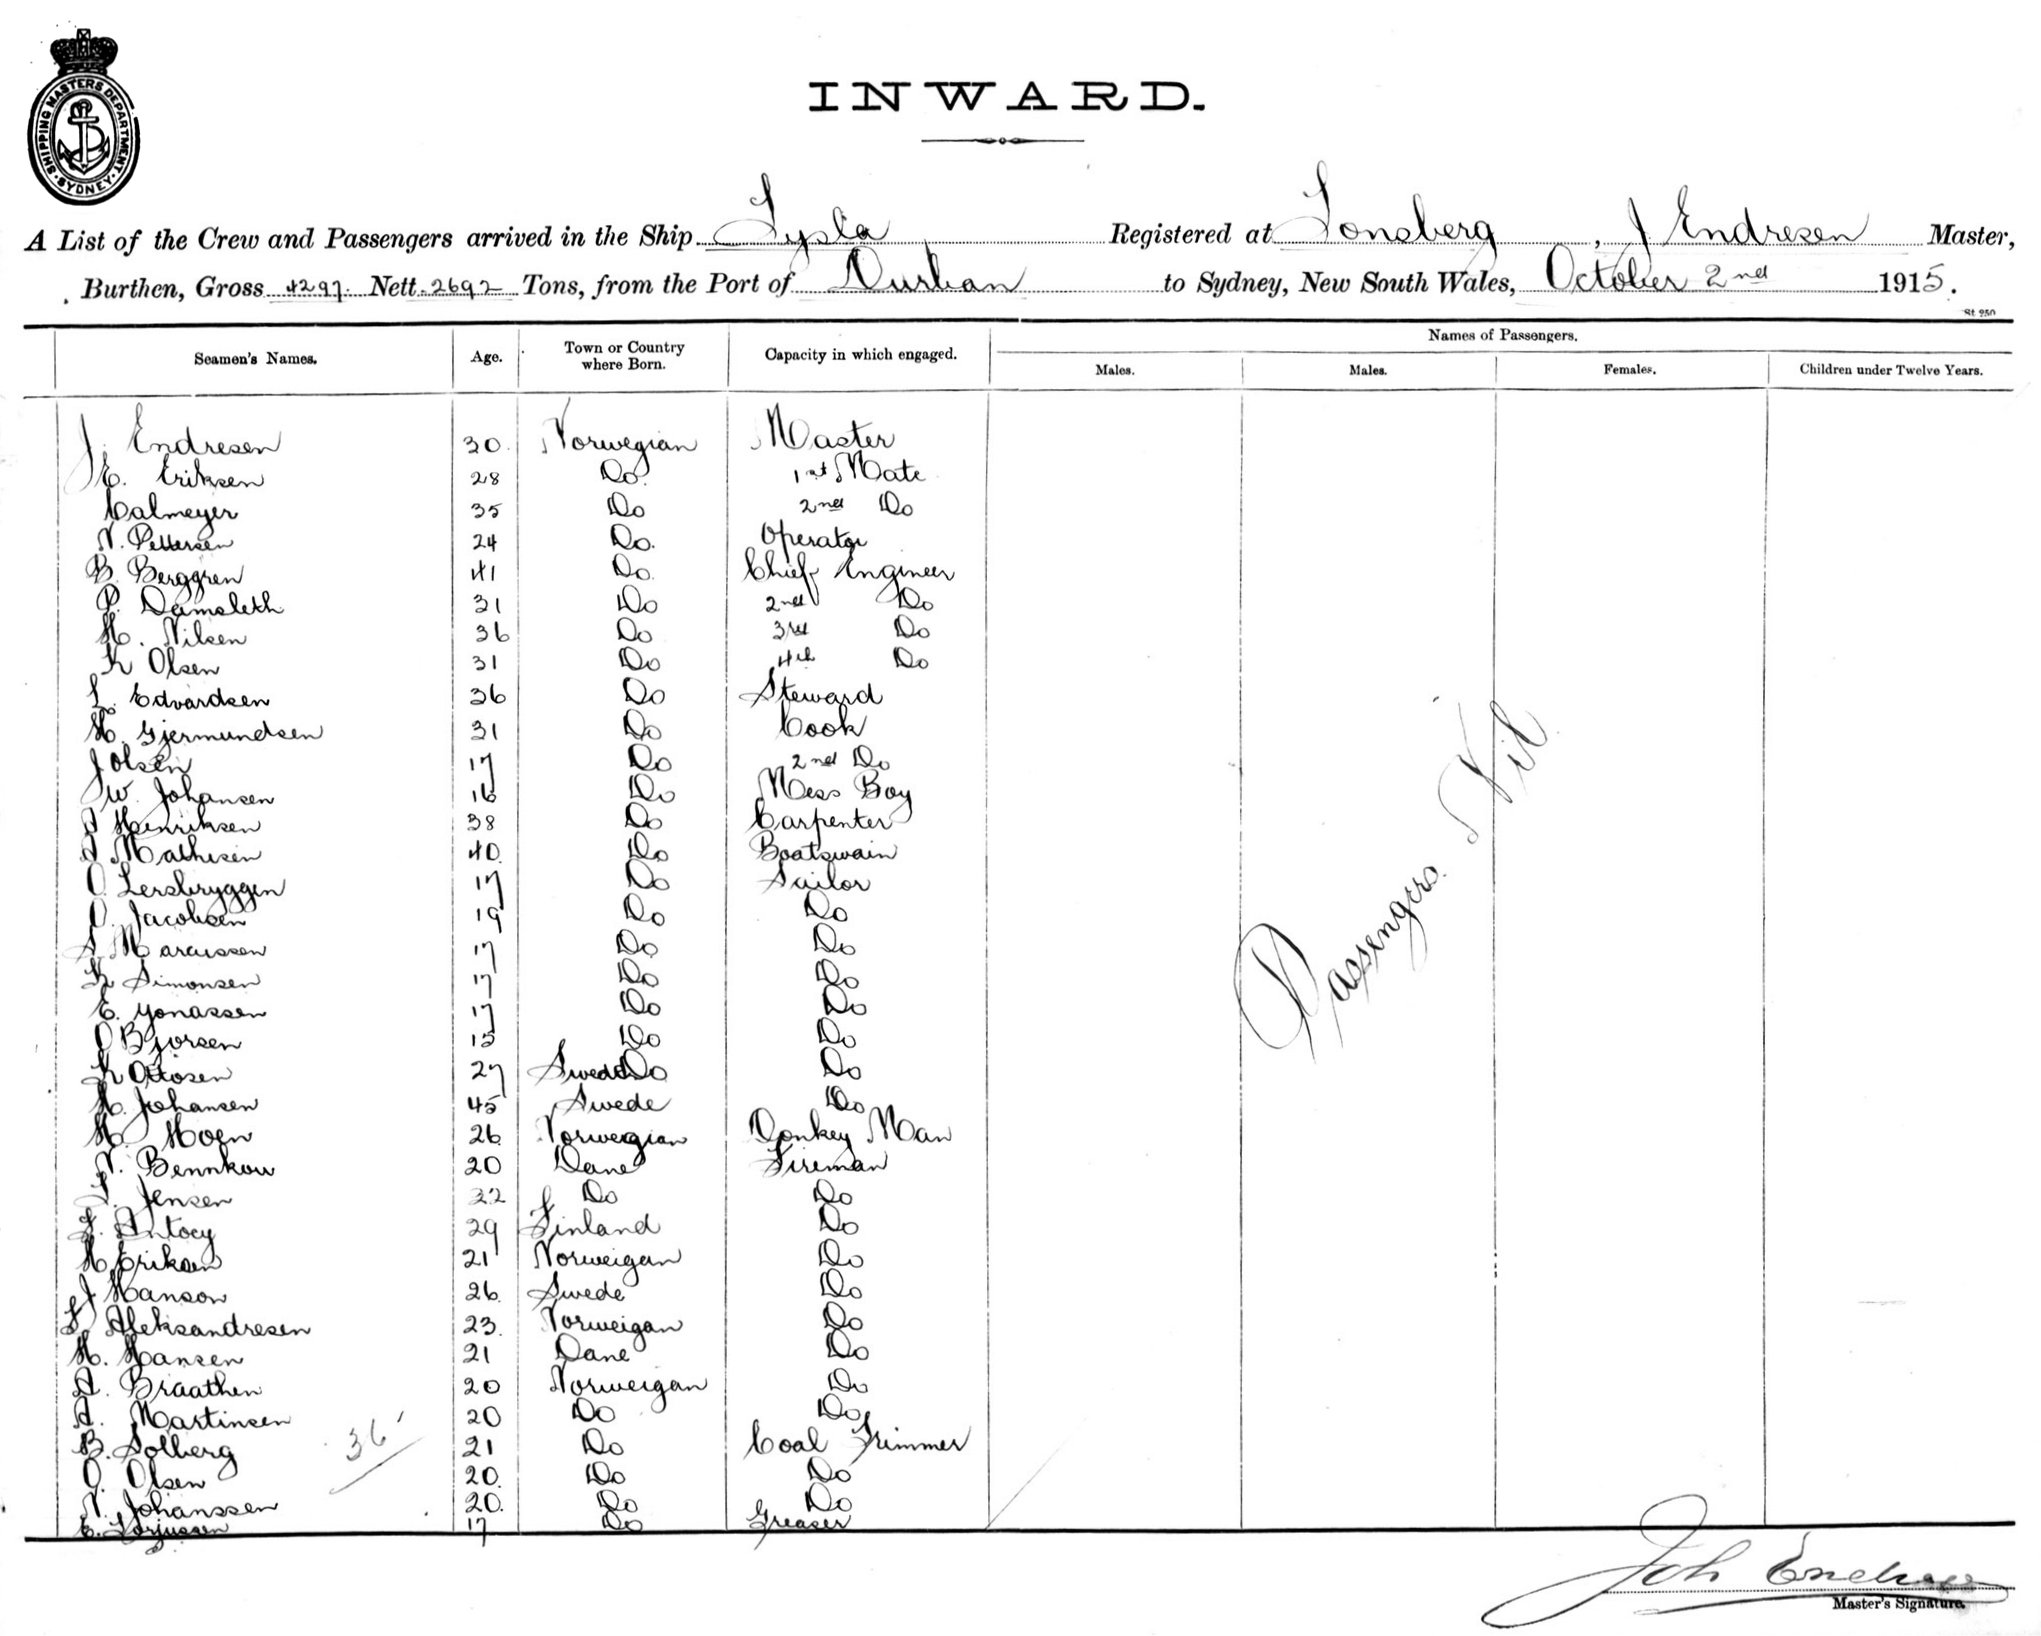 SHIPPING MASTERS DEPARTMENT. SYDNEY.
INWARD.
A List of the Crew and Passengers arrived in the Ship Tysla Registered at Tonsberg, J Endresen Master,
Burthen, Gross 4297. Nett 2692 Tons, from the Port of Durban to Sydney, New South Wales, October 2nd 1915.
St 250
Seamen's Names. Age. Town or Country where Born. Capacity in which engaged. Names of Passengers.
Males. Males. Females. Children under Twelve Years.
J. Endresen 30. Norwegian Master
H. Eriksen 28 Do. 1st Mate
Calmeyer 35 Do 2nd Do
N. Pettersen 24 Do. Operator
B. Berggren 41 Do. Chief Engineer
P. Damsleth 31 Do 2nd Do
H. Nilsen 36 Do 3rd Do
K Olsen 31 Do 4th Do
L. Edvardsen 36 Do Steward
H. Gjermundsen 31 Do Cook
J Olsen 17 Do 2nd Do
W. Johansen 16 Do Mess Boy
Henriksen 38 Do Carpenter
Mathisen 40. Do Boatswain
O. Lersbryggen 17 Do Sailor
O. Jacobsen 19 Do Do
S. Marcussen 17 Do Do
K Simonsen 17 Do Do
E. Yonassen 17 Do Do
O Bjorsen 15 Do Do
K Ottosen 27 Swede Do Do
H. Johansen 45 Swede Do
H. Hoen 26 Norwegian Donkey Man
N. Bennkow 20 Dane Fireman
Jensen 32 Do Do
Antocy 29 Finland Do
H Eriksen 21 Norweigan Do
J Hanson 26. Swede Do
Aleksandresen 23. Norweigan Do
H. Hansen 21 Dane Do
A. Braathen 20 Norweigan Do
A. Martinsen 20 Do Do
B. Solberg 21 Do Coal Trimmer
O. Olsen 20. Do Do
N. Johanssen 20. Do Do
E. 17 Do Greaser
36
Passengers. Nil
Joh Endresen
Master's Signature.